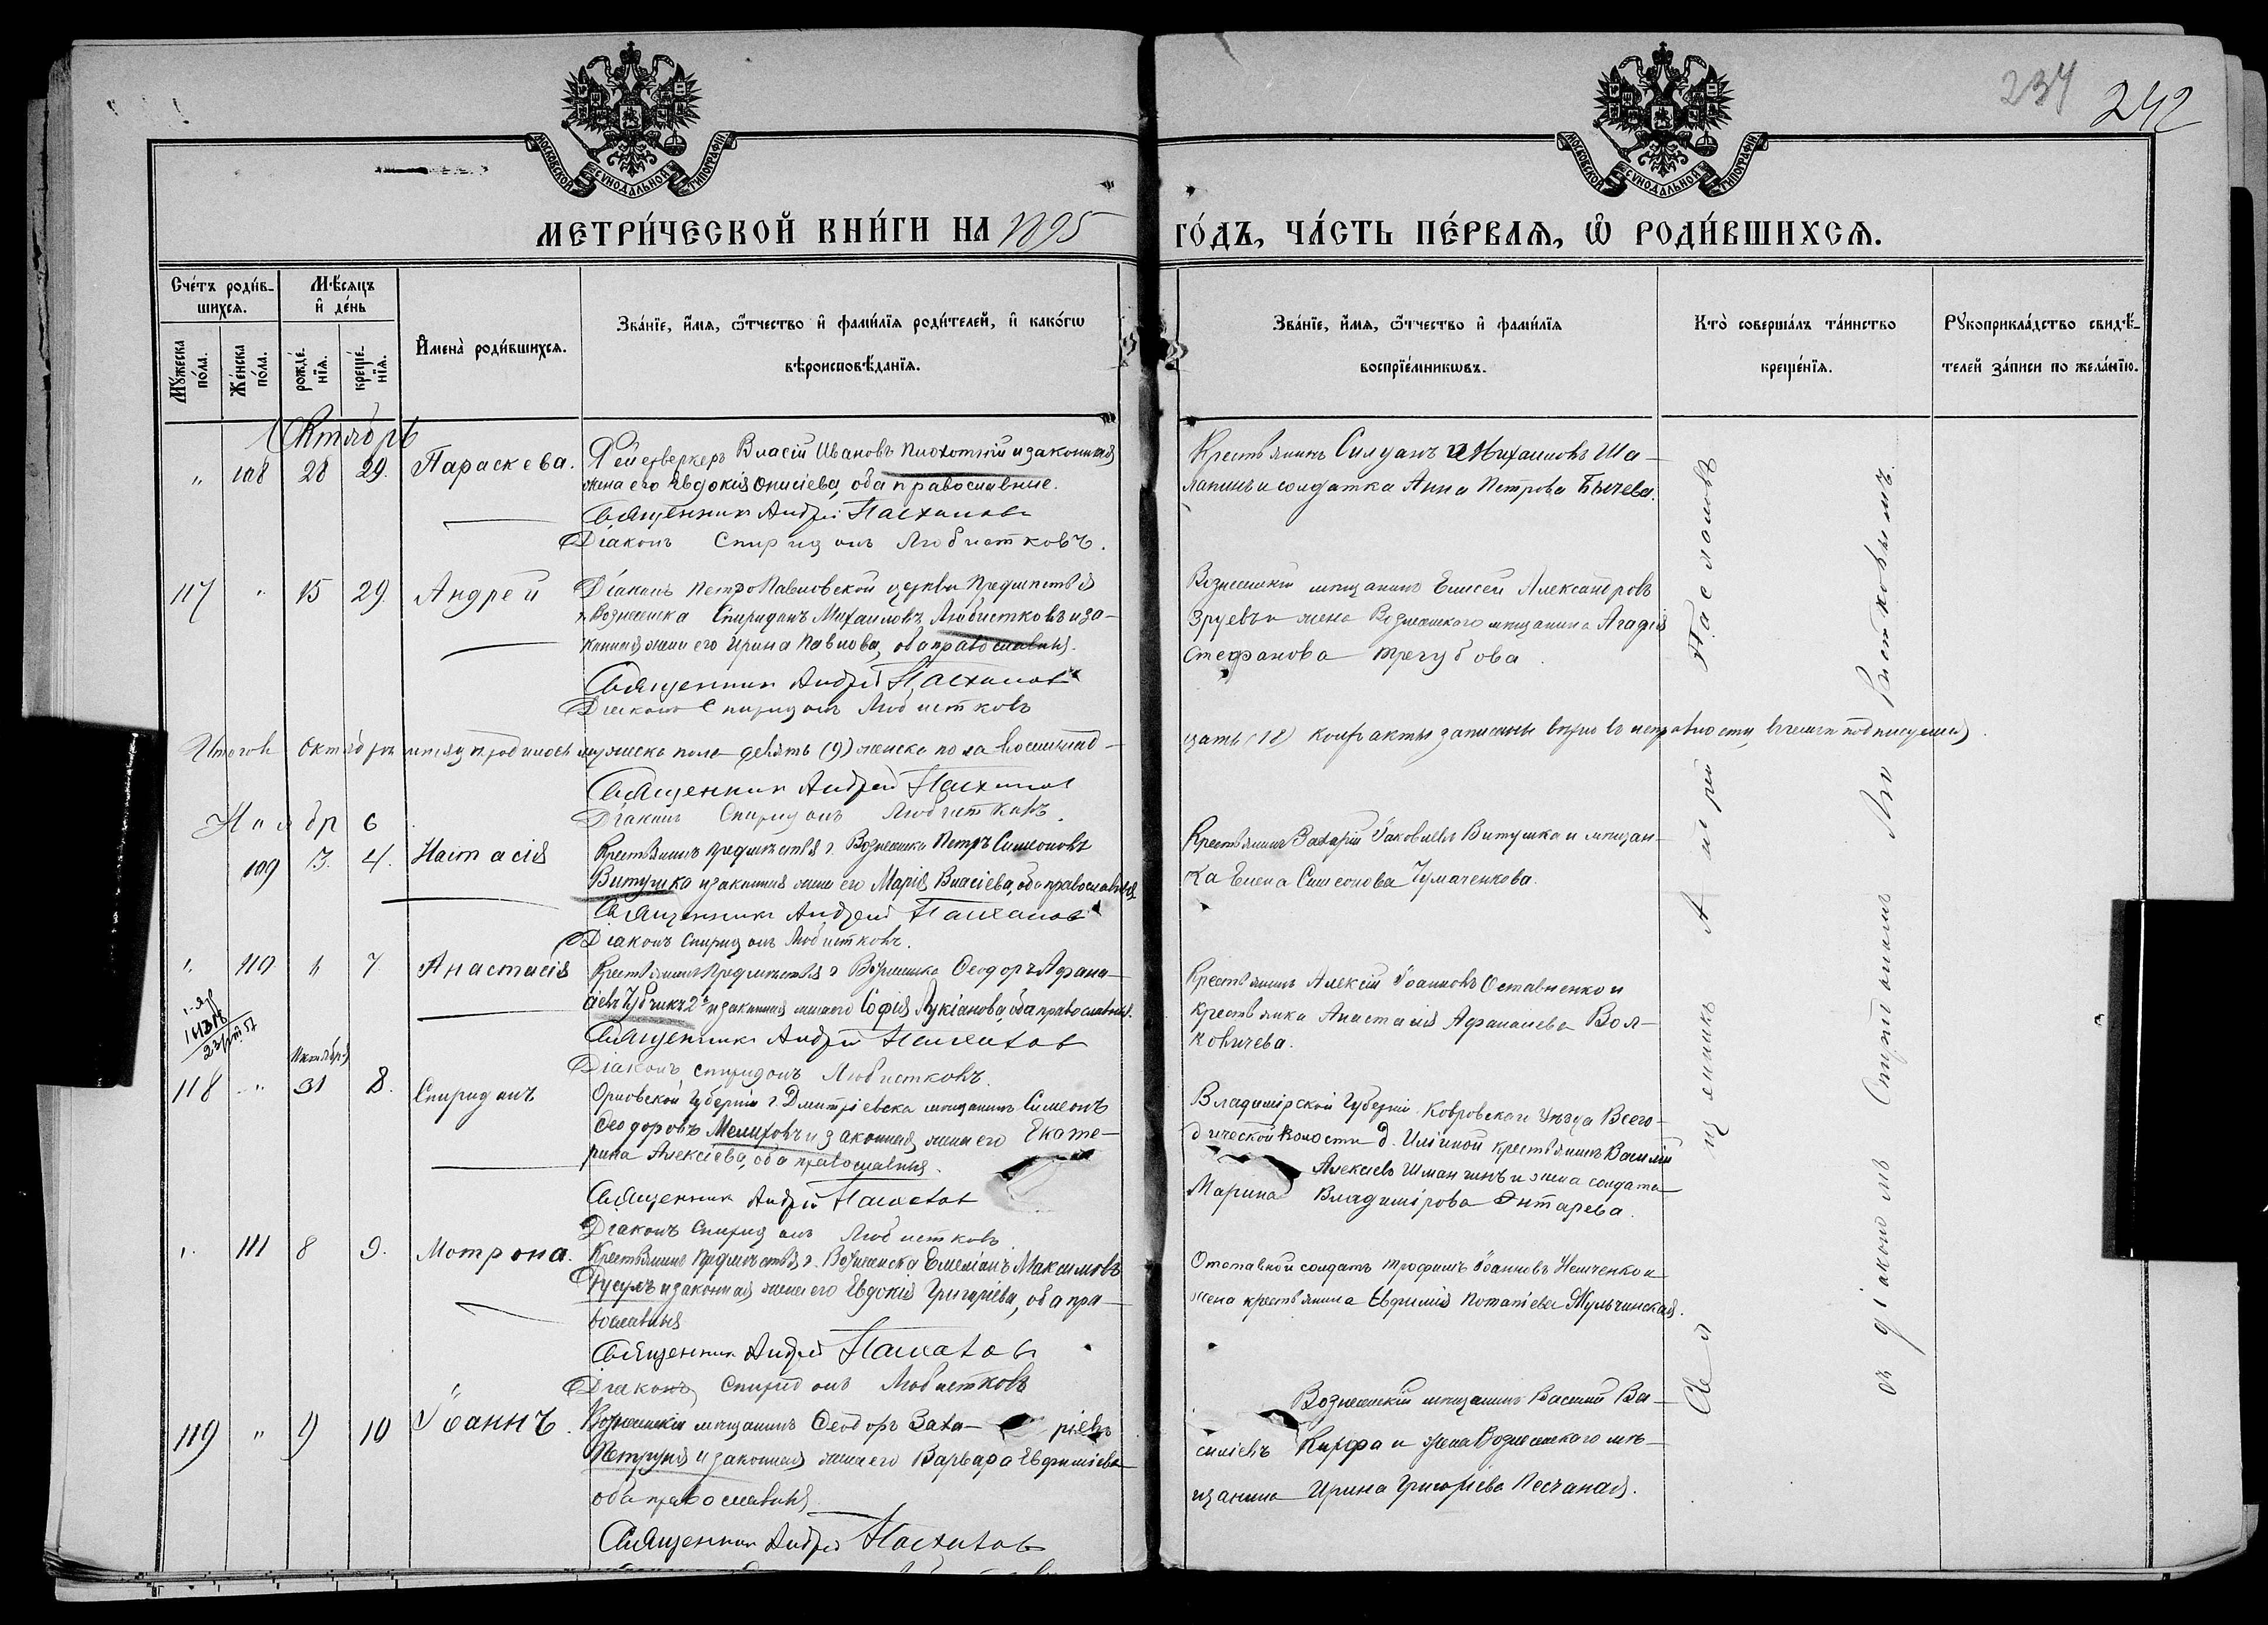 237 242
МОСКОВСКОЙ СѴНОДАЛЬНОЙ ТИПОГРАФІИ
МОСКОВСКОЙ СѴНОДАЛЬНОЙ ТИПОГРАФІИ
МЕТРИ́ЧЕСКОЙ КНИ́ГИ НА 1895 ГО́ДЪ, ЧА́СТЬ ПЕ́РВАѦ, Ѡ҆ РОДИ́ВШИХСѦ.
Сче́тъ роди́в-
шихсѧ.
Мѣ́сѧцъ
и҆ де́нь
Мꙋ́жеска
по́ла.
Же́нска
по́ла.
рожде́-
нїѧ.
креще́-
нїѧ.
И҆мена̀ роди́вшихсѧ.
Зва́нїе, и҆́мѧ, ѻ҆́тчество и҆ фами́лїѧ роди́телей, и҆ како́гѡ
вѣроисповѣ́данїѧ.
Зва́нїе, и҆́мѧ, ѻ҆́тчество и҆ фами́лїѧ
воспрїе́мникѡвъ.
Кто̀ соверша́лъ та́инство
креще́нїѧ.
Рꙋкоприкла́дство свидѣ́-
телей за́писи по жела́нїю.
Октябрь
" 108 28 29. Параскева. Фейерверкеръ Власій Ивановъ Плохотній и законная
жена его Евдокія Онисіева, оба православные.
Священникъ Андрей Пасхаловъ
Діаконъ Спиридонъ Любистковъ.
Крестьянинъ Силуанъ Михаиловъ Ша-
лапинъ и солдатка Анна Петрова Бычева.
117 " 15 29. Андрей Діаконъ Петро Павловской церкви Предмѣстья
г. Вознесенска Спиридонъ Михаиловъ Любистковъ и за-
конная жена его Ирина Павлова, оба православныя.
Священникъ Андрей Пасхаловъ
Діаконъ Спиридонъ Любистковъ
Вознесенскій мѣщанинъ Елисей Александровъ
Зруевъ и жена Вознесенскаго мѣщанина Агафія
Стефанова Трегубова.
Итого въ Октябрѣ мѣсяцѣ родилось мужеска пола девять (9) женска пола восемнад-
цать (18) кои факты записаны вѣрно въ исправности, въ чемъ и подписуемся.
Священникъ Андрей Пасхаловъ
Діаконъ Спиридонъ Любистковъ.
Ноябрь
109 3. 4. Настасія Крестьянинъ предмѣстья г. Вознесенска Петръ Симеоновъ
Витушка и законная жена его Марія Власіева, оба православныя
Священникъ Андрей Пасхаловъ
Діаконъ Спиридонъ Любистковъ.
Крестьянинъ Захарій Іаковлевъ Витушка и мѣщан-
ка Елена Симеонова Чумаченкова.
" 110 7 Анастасія Крестьянинъ предмѣстья г. Вознесенска Ѳеодоръ Афана-
сіевъ Губчикъ 2й и законная жена его Софія Лукіанова, оба православныя.
Священникъ Андрей Пасхаловъ
Діаконъ Спиридонъ Любистковъ.
Крестьянинъ Алексій Іоанновъ Оставненко и
крестьянка Анастасія Афанасіева Вол-
ковичева.
Октября
118 " 31 8. Спиридонъ Орловской Губерніи г. Дмитріевска мѣщанинъ Симеонъ
Ѳеодоровъ Мелиховъ и законная жена его Екате-
рина Алексіева, оба православныя.
Священникъ Андрей Пасхаловъ
Діаконъ Спиридонъ Любистковъ
Владимірской Губерніи Ковровскаго Уѣзда Всего-
дической Волости д. Ильиной крестьянинъ Василій
Алексіевъ Шманчинъ и жена солдата
Марина Владимірова Энтарева.
" 111 8 9. Мотрона. Крестьянинъ предмѣстья г. Вознесенска Емеліанъ Максимовъ
Гусулъ и законная жена его Евдокія Григоріева, оба пра-
вославныя
Священникъ Андрей Пасхаловъ
Діаконъ Спиридонъ Любистковъ
Отставной солдатъ Трофимъ Іоанновъ Немченко и
жена крестьянина Евфимія Потапіева Мульчинская.
119 " 9 10 Іоаннъ. Вознесенскій мѣщанинъ Ѳеодоръ Заха-ріевъ
Петруня и законная жена его Варвара Евфиміева
оба православныя
Священникъ Андрей Пасхаловъ
Вознесенскій мѣщанинъ Василій Ва-
силіевъ Кирфа и жена Вознесенскаго мѣ-
щанина Ирина Григоріева Песчаная.
Священникъ Андрей Пасхаловъ
съ діакономъ Спиридономъ Любистковымъ.